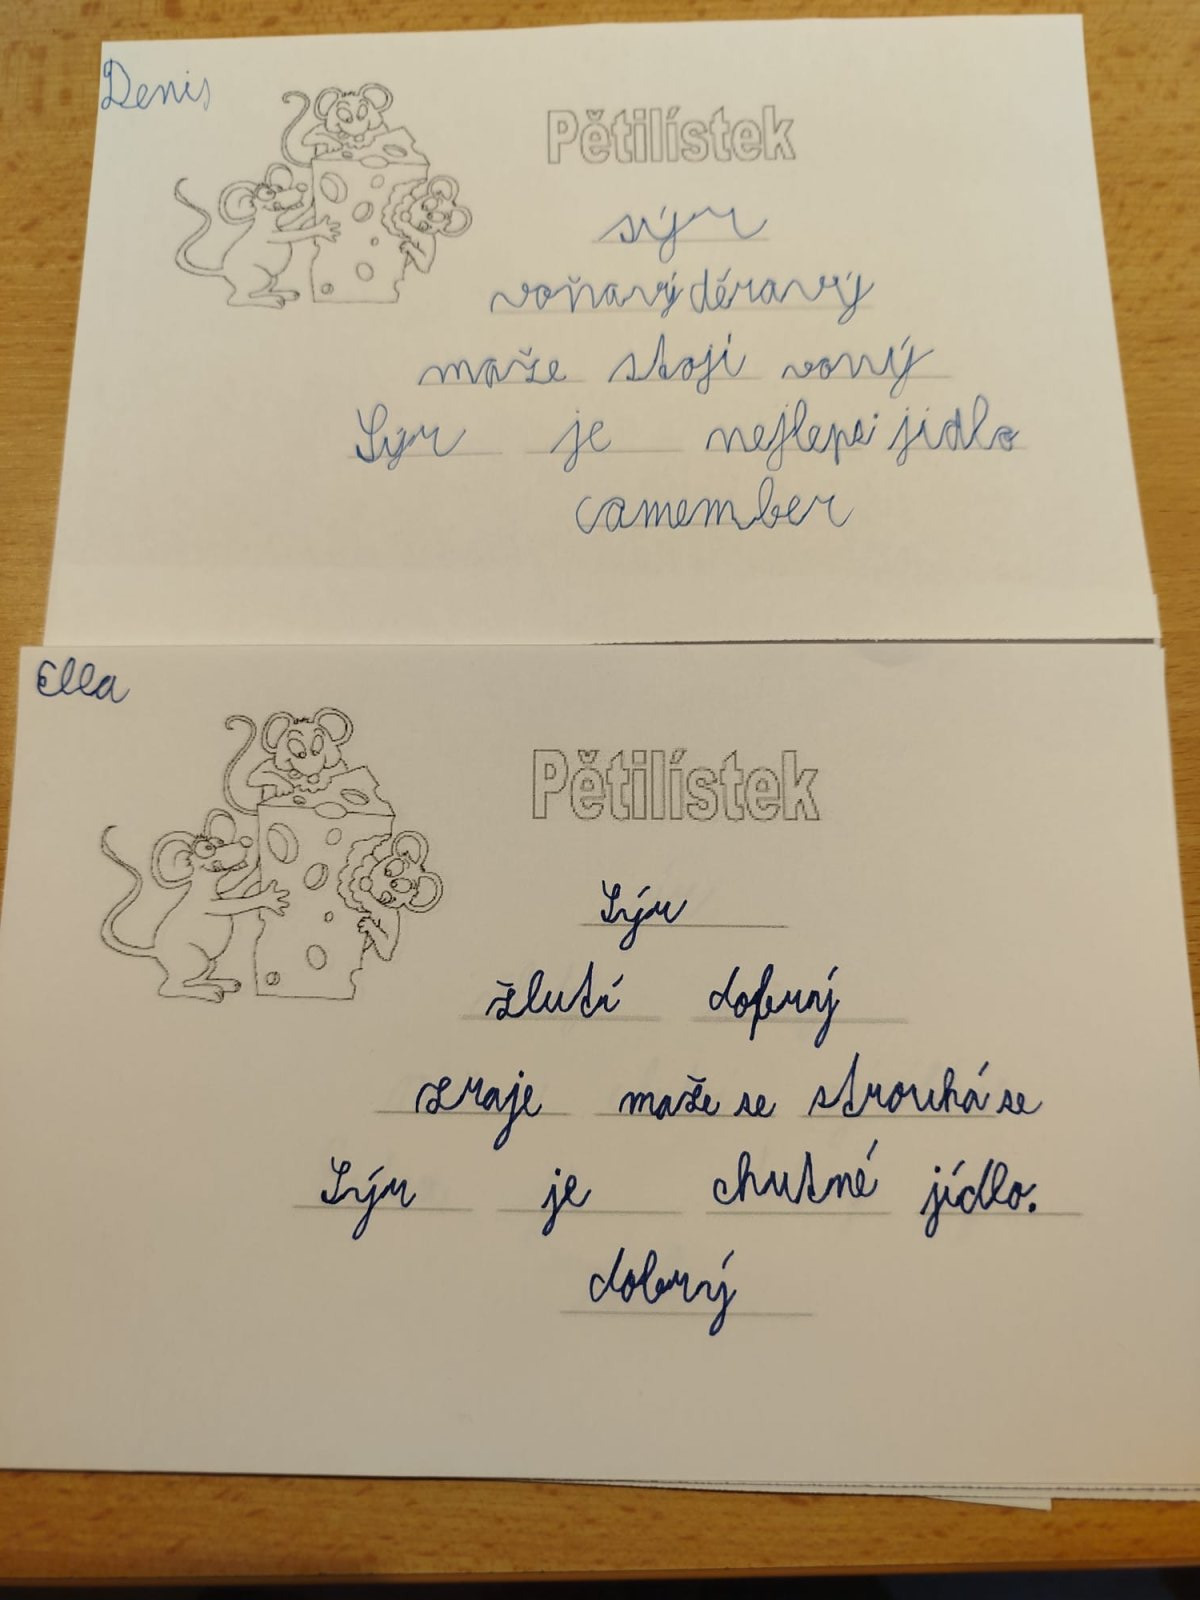 Denis
Pětilístek
sýr
voňavý děravý
maže stojí voný
Sýr je nejlepsi jidlo
camember
Ella
Pětilístek
Sýr
žlutí dobrý
zraje maže se strouhá se
Sýr je chutné jídlo.
dobrý